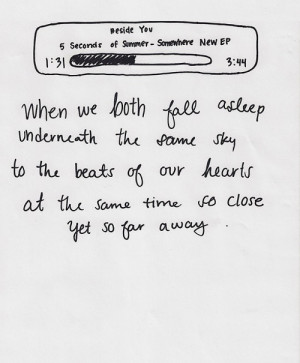 Beside You
5 Seconds of Summer - Somewhere New EP
1:31 3:44
When we both fall asleep
underneath the same sky
to the beats of our hearts
at the same time so close
Yet so far away.